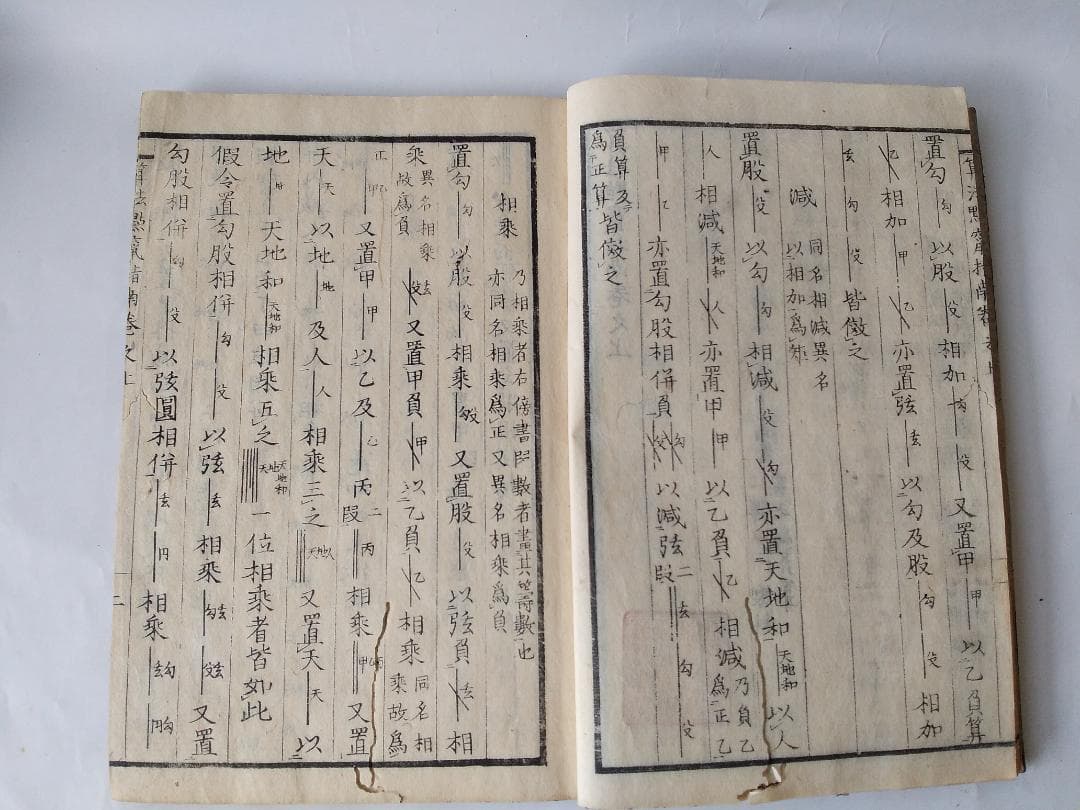 算法點竄指南卷之上
置勾 勾 以股 殳 相加 勾 殳 又置甲 甲 以乙負算
乙 相加 甲 乙 亦置弦 玄 以勾及股 勾 殳 相加
玄 勾 殳 皆倣之
減 同名相減異名
以相加爲
置股 殳 以勾 勾 相減 殳 勾 亦置天地和 天地和 以人
人 相減 天地和 人 亦置甲 甲 以乙負 乙 相減 乃負乙
爲正乙
甲 乙 亦置勾股相併負 勾 殳 以減弦二段 玄 勾 殳
負算及
爲正算 皆倣之
相乘 乃相乘者右傍書匹數者畫其筭數也
亦同名相乘爲正又異名相乘爲負
置勾 勾 以股 殳 相乘 勾殳 又置股 殳 以弦負 玄 相
乘 異名相乘
故爲負 玄殳 又置甲負 甲 以乙負 乙 相乘 同名相
乘故爲
正 甲乙 又置甲 甲 以乙及 乙 丙二段 丙 相乘 甲乙丙 又置
天 天 以地 地 及人 人 相乘三之 天地人 又置天 天 以
地 地 天地和 天地和 相乘五之 天地天地和 一位相乘者皆如此
假令置勾股相併 勾 殳 以弦 玄 相乘 勾玄 殳玄 又置
勾股相併 勾 殳 以弦圓相併 玄 円 相乘 玄勾 円勾
算法點竄指南卷之上 二